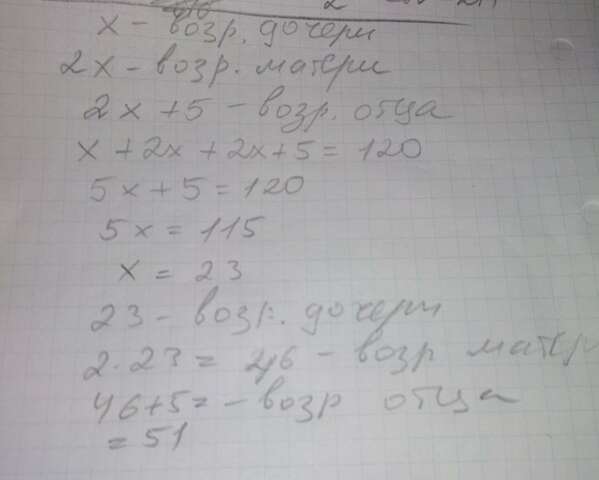 x – возр. дочери
2x – возр. матери
2x + 5 – возр. отца
x + 2x + 2x + 5 = 120
5x + 5 = 120
5x = 115
x = 23
23 – возр. дочери
2·23 = 46 – возр матери
46+5= – возр отца
= 51